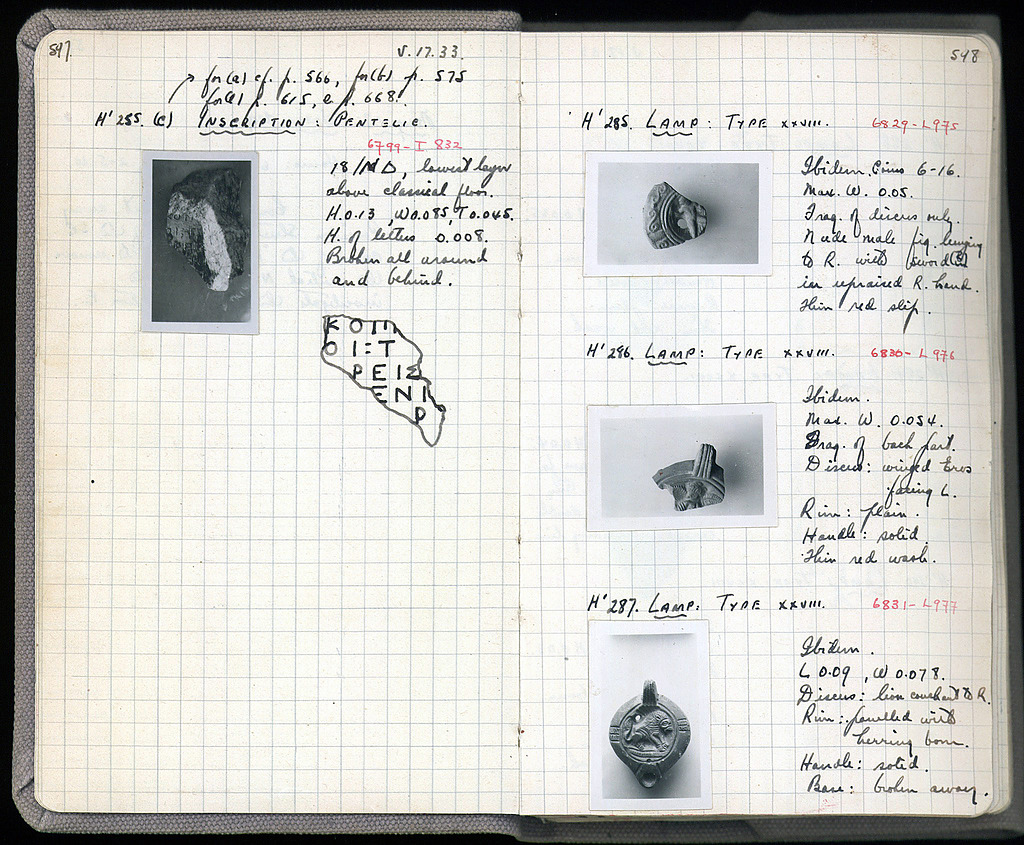 547.
V.17.33.
for (a) cf. p. 566, for (b) p. 575
for (d) p. 615, e p. 668.
H' 255. (c) INSCRIPTION: PENTELIC.
6799-I 832
18/ΝΔ, lowest layer
above classical floor.
H. 0.13, W 0.085, T 0.045.
H. of letters 0.008.
Broken all around
and behind.
Ο Ι : Τ
Ρ Ε Ι Σ
Ε Ν Ι
Ρ
548
H' 285. LAMP: TYPE XXVIII. 6829-L975
Ibidem. Coins 6-16.
Max. W. 0.05.
Frag. of discus only.
Nude male fig. lunging
to R. with sword (?)
in upraised R. hand.
Thin red slip.
H' 286. LAMP: TYPE XXVIII. 6830-L976
Ibidem.
Max. W. 0.054.
Frag. of back part.
Discus: winged Eros
facing L.
Rim: plain.
Handle: solid.
Thin red wash.
H' 287. LAMP: TYPE XXVIII. 6831-L977
Ibidem.
L 0.09, W 0.078.
Discus: lion couchant to R.
Rim: panelled with
herring bone.
Handle: solid.
Base: broken away.